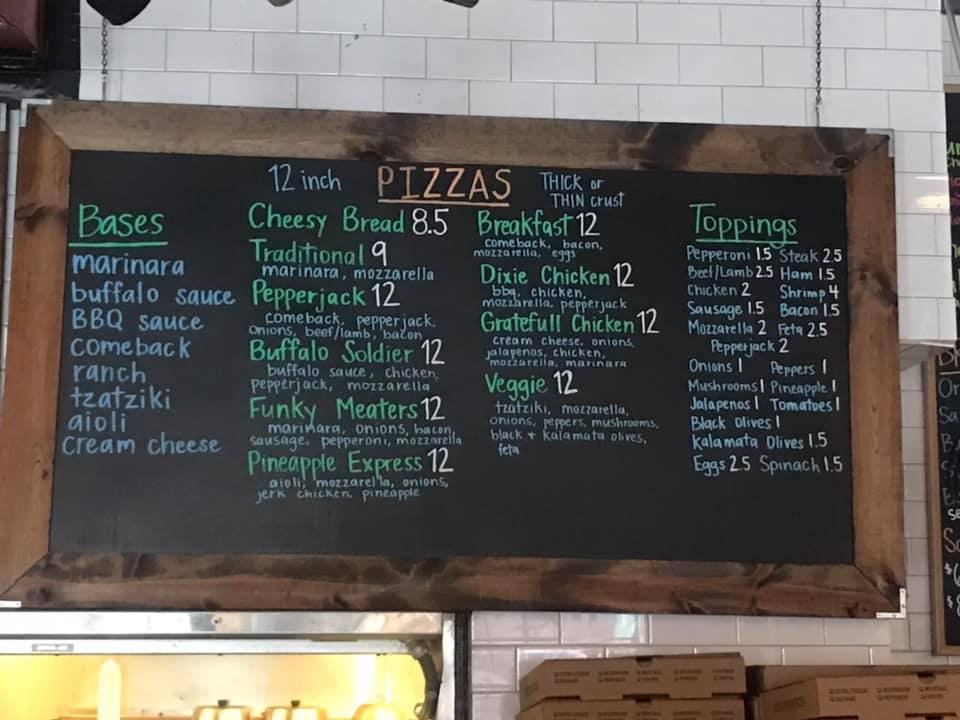 12 inch PIZZAS THICK or
THIN crust
Bases
marinara
buffalo sauce
BBQ sauce
comeback
ranch
tzatziki
aioli
cream cheese
Cheesy Bread 8.5
Traditional 9
marinara, mozzarella
Pepperjack 12
comeback, pepperjack,
onions, beef/lamb, bacon
Buffalo Soldier 12
buffalo sauce, chicken,
pepperjack, mozzarella
Funky Meaters 12
marinara, onions, bacon,
sausage, pepperoni, mozzarella
Pineapple Express 12
aioli, mozzarella, onions,
jerk chicken, pineapple
Breakfast 12
comeback, bacon,
mozzarella, eggs
Dixie Chicken 12
bbq, chicken,
mozzarella, pepperjack
Gratefull Chicken 12
cream cheese, onions,
jalapenos, chicken,
mozzarella, marinara
Veggie 12
tzatziki, mozzarella,
onions, peppers, mushrooms,
black + kalamata olives,
feta
Toppings
Pepperoni 1.5 Steak 2.5
Beef/Lamb 2.5 Ham 1.5
Chicken 2 Shrimp 4
Sausage 1.5 Bacon 1.5
Mozzarella 2 Feta 2.5
Pepperjack 2
Onions 1 Peppers 1
Mushrooms 1 Pineapple 1
Jalapenos 1 Tomatoes 1
Black Olives 1
Kalamata Olives 1.5
Eggs 2.5 Spinach 1.5